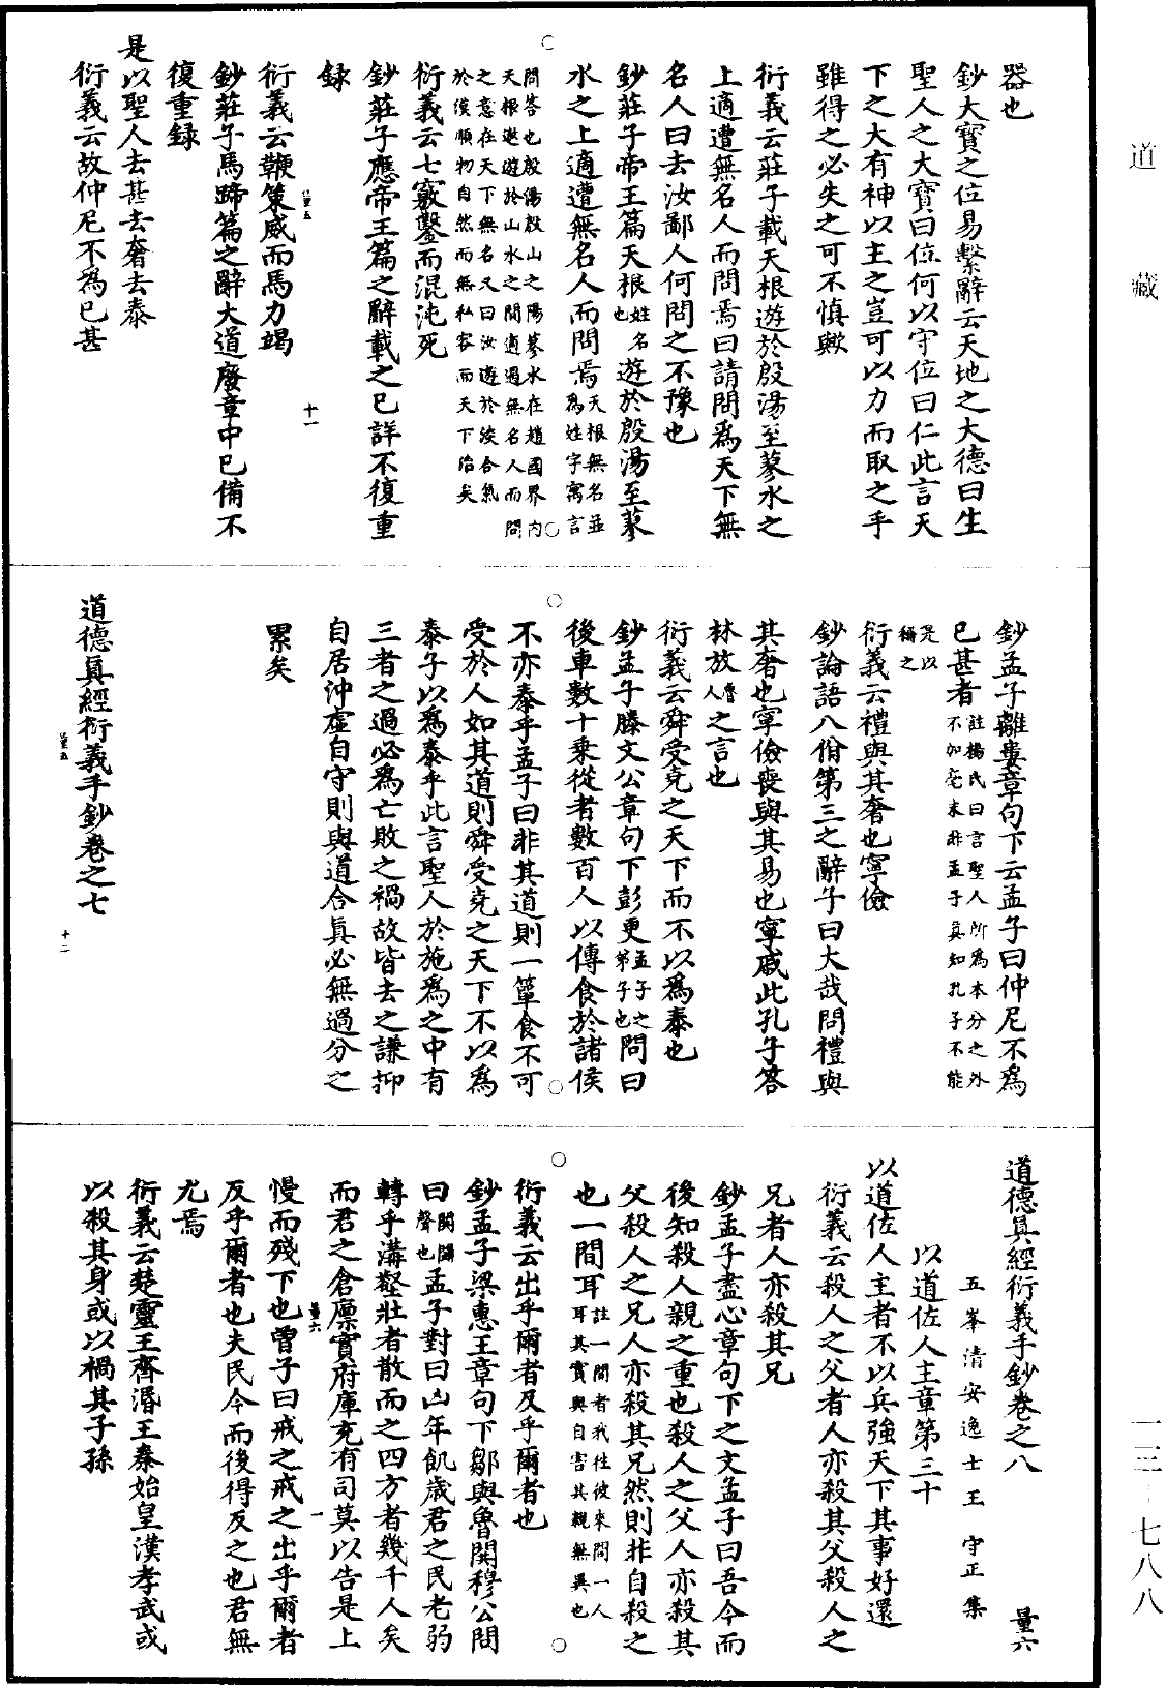 道藏
器也
鈔大寶之位易繫辭云天地之大德曰生
聖人之大寶曰位何以守位曰仁此言天
下之大有神以主之豈可以力而取之乎
雖得之必失之可不慎歟
衍義云莊子載天根遊於殷湯至蓼水之
上適遭無名人而問焉曰請問為天下無
名人曰去汝鄙人何問之不豫也
鈔莊子帝王篇天根姓名也遊於殷湯至蓼
水之上適遭無名人而問焉天根無名並為姓字寓言
問答也殷湯殷山之陽蓼水在趙國界內
天根遨遊於山水之間適遇無名人而問
之意在天下無名又曰汝遊於淡合氣
於漠順物自然而無私容而天下治矣
衍義云七竅鑿而混沌死
鈔莊子應帝王篇之辭載之已詳不復重
録
量五
十一
衍義云鞭策威而馬力竭
鈔莊子馬蹄篇之辭大道廢章中已備不
復重録
是以聖人去甚去奢去泰
衍義云故仲尼不為已甚
鈔孟子離婁章句下云孟子曰仲尼不為
已甚者註楊氏曰言聖人所為本分之外不加毫末非孟子真知孔子不能
是以稱之
衍義云禮與其奢也寧儉
鈔論語八佾第三之辭子曰大哉問禮與
其奢也寧儉喪與其易也寧戚此孔子答
林放魯人之言也
衍義云舜受堯之天下而不以為泰也
鈔孟子滕文公章句下彭更孟子之弟子也問曰
後車數十乘從者數百人以傳食於諸侯
不亦泰乎孟子曰非其道則一簞食不可
受於人如其道則舜受堯之天下不以為
泰子以為泰乎此言聖人於施為之中有
三者之過必為亡敗之禍故皆去之謙抑
自居沖虛自守則與道合真必無過分之
累矣
道德真經衍義手鈔卷之七
量五
十二
道德真經衍義手鈔卷之八
量六
五峯清安逸士王守正集
以道佐人主章第三十
以道佐人主者不以兵強天下其事好還
衍義云殺人之父者人亦殺其父殺人之
兄者人亦殺其兄
鈔孟子盡心章句下之文孟子曰吾今而
後知殺人親之重也殺人之父人亦殺其
父殺人之兄人亦殺其兄然則非自殺之
也一間耳註一間者我往彼來間一人耳其實與自害其親無異也
衍義云出乎爾者反乎爾者也
鈔孟子梁惠王章句下鄒與魯閧穆公問
曰閧鬬聲也孟子對曰凶年飢歲君之民老弱
轉乎溝壑壯者散而之四方者幾千人矣
而君之倉廩實府庫充有司莫以告是上
量六
一
慢而殘下也曾子曰戒之戒之出乎爾者
反乎爾者也夫民今而後得反之也君無
尤焉
衍義云楚靈王齊湣王秦始皇漢孝武或
以殺其身或以禍其子孫
一三-七八八